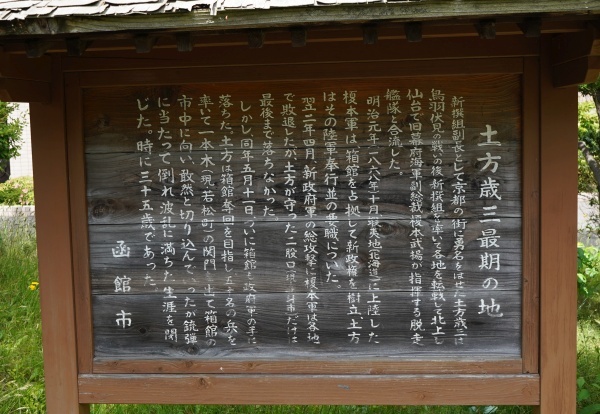 土方歳三最期の地
新撰組副長として京都の街に勇名をはせた土方歳三は
鳥羽伏見の戦いの後、新撰組を率いて各地を転戦して北上し
仙台で旧幕府海軍副総裁榎本武揚が指揮する脱走
艦隊と合流した。
明治元年(一八六八年)十月蝦夷地(北海道)に上陸した
榎本軍は、箱館を占拠して新政権を樹立、土方
はその陸軍奉行並の重職についた。
翌二年四月、新政府軍の総攻撃に榎本軍は各地
で敗退したが、土方が守った二股口(市)だけは
最後まで落ちなかった。
しかし、同年五月十一日、ついに箱館も政府軍の手に
落ちた。土方は箱館奪回を目指し、五十名の兵を
率いて一本木(現若松町)の関門を出て箱館の
市中に向い、敢然と切り込んでいったが、銃弾
に当たって倒れ、波乱に満ちた生涯を閉
じた。時に三十五歳であった。
函館市